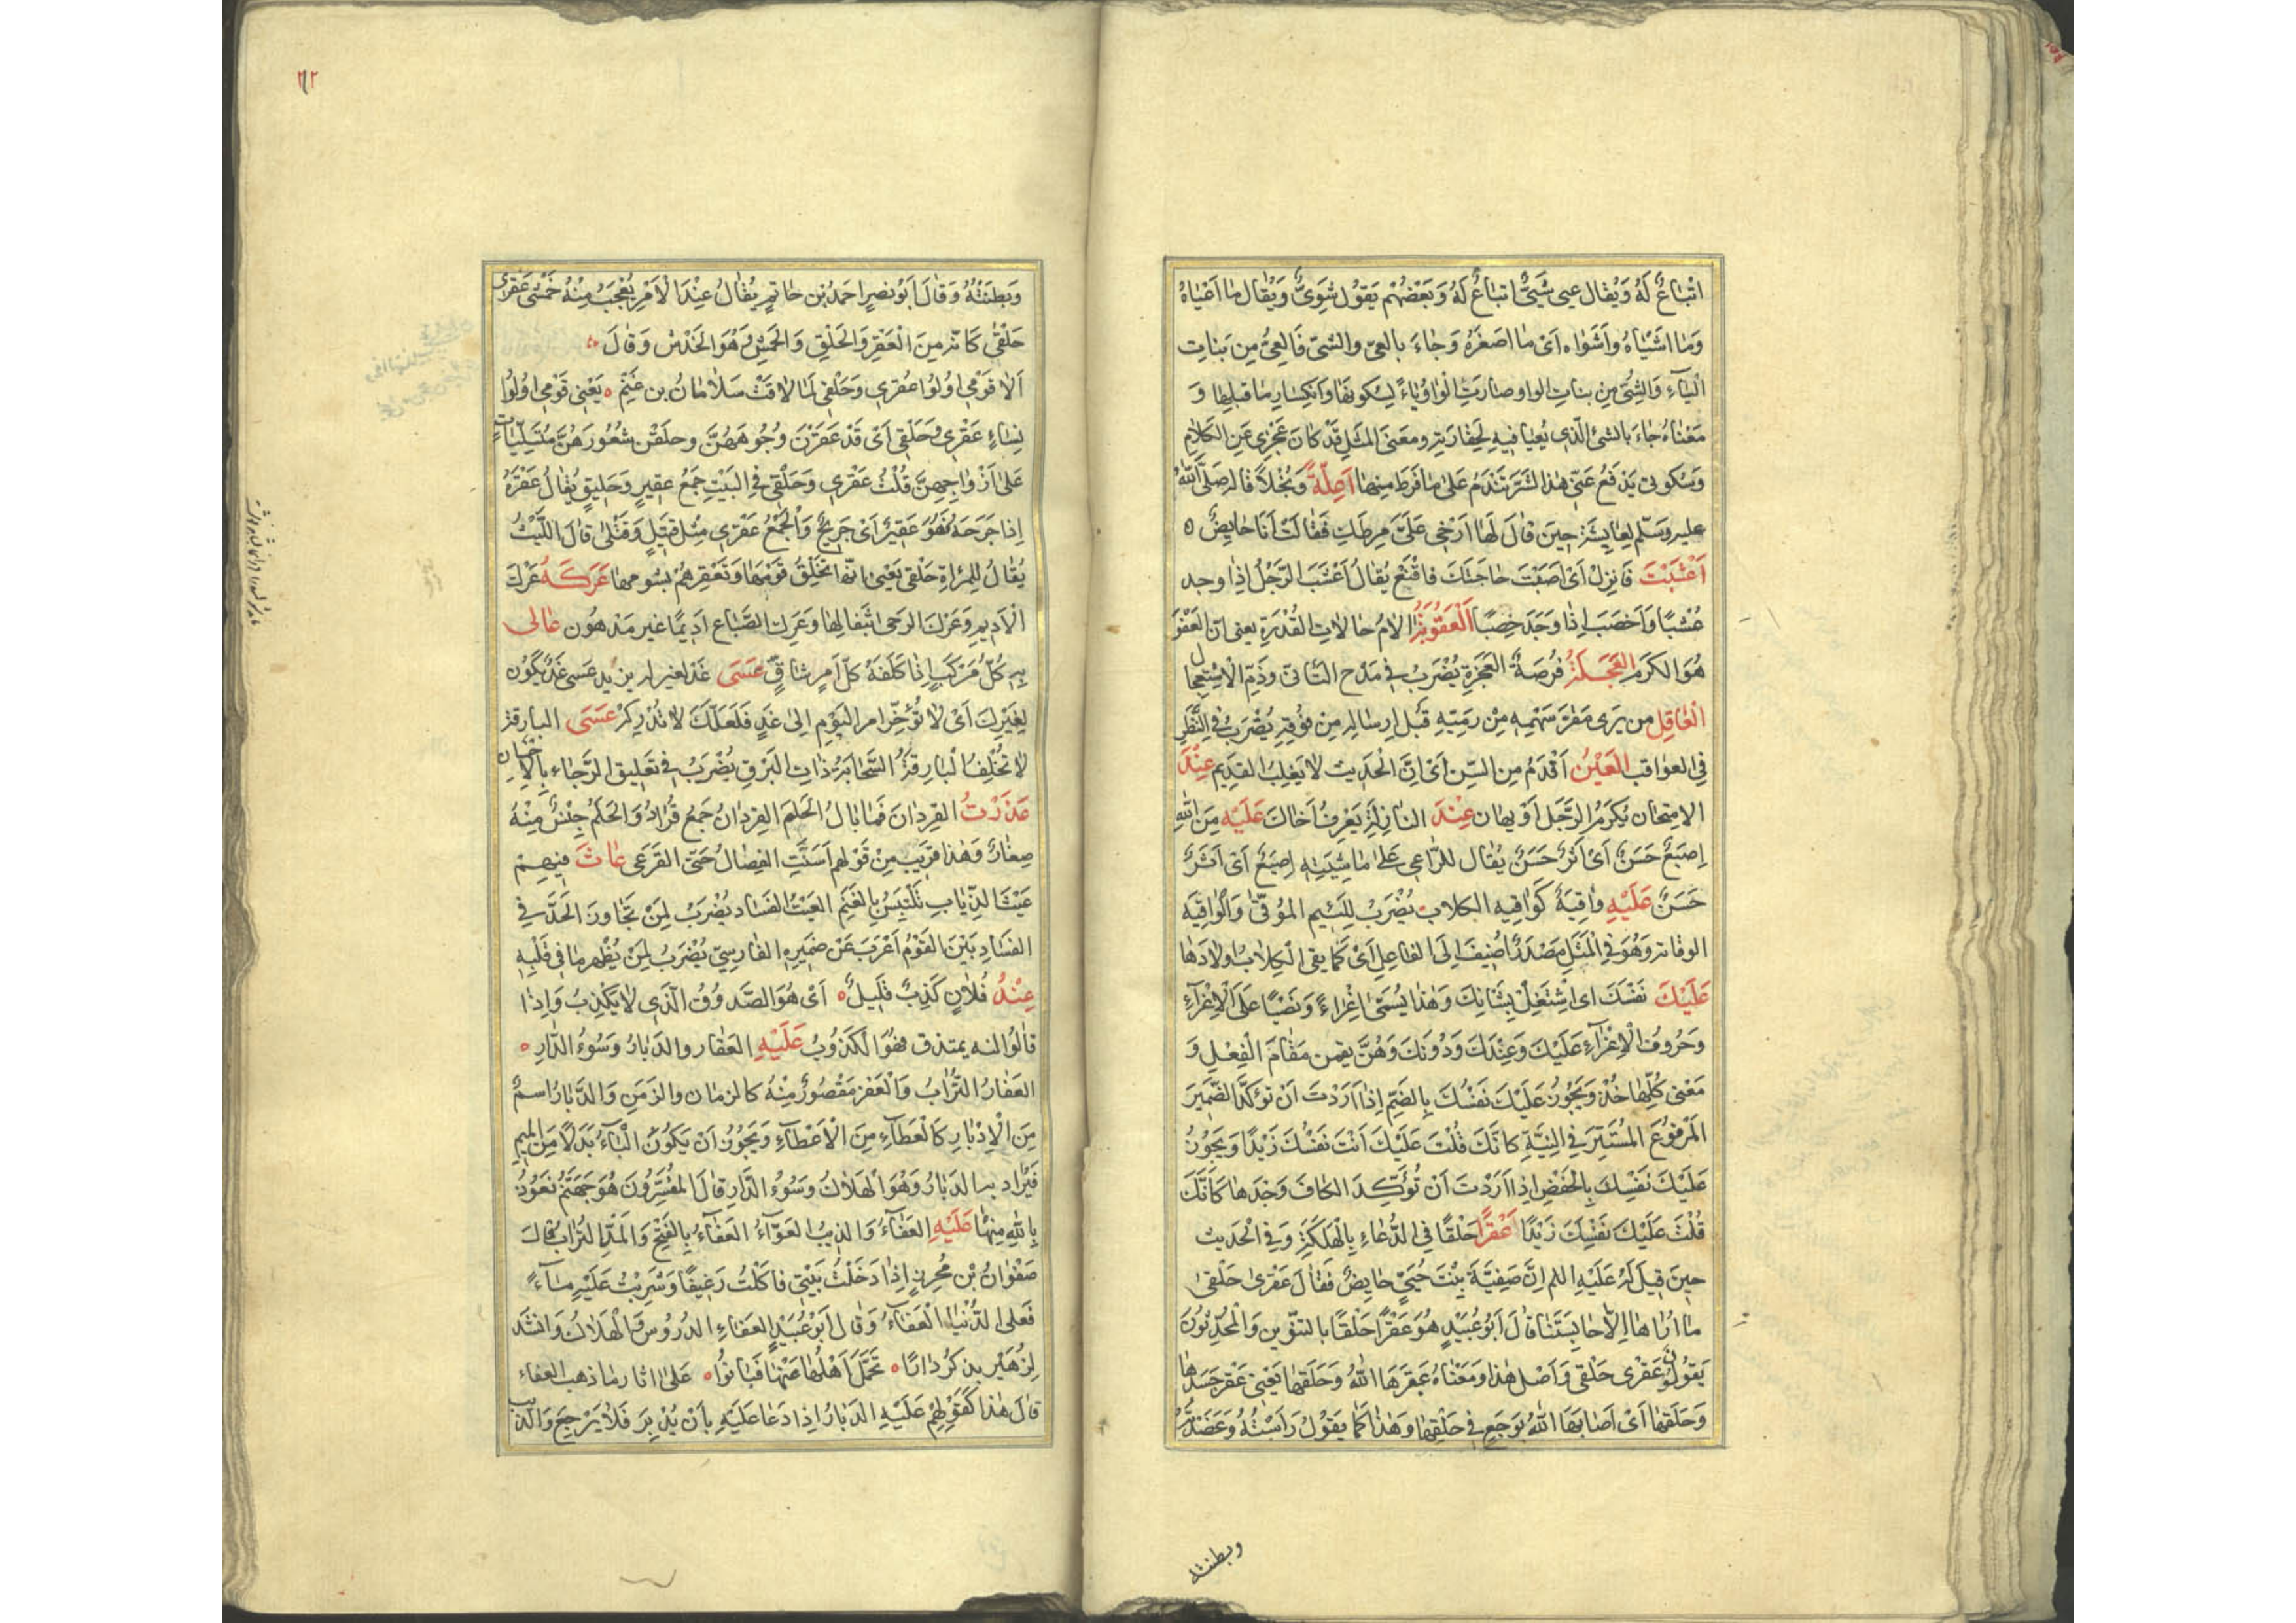 اتْبَاعٌ لَهُ وَيُقَال عيى شَيِىٌّ اتبَاعٌ لَهُ وَبَعْضُهُمْ يَقوُل شَوِىٌّ وَيُقَال مَا اَعْيَاهُ
وَمَا اشَيْاهُ وأشَوْاه اَىْ مَا اَصغَرَهُ وَجَاءَ بالعِىّ والشىّ فَالعِىُّ مِن بَنَاتِ
الْيَآءِ وَالشِىُّ مِن بنات الواو صارَتِ الْوَاوُ يَاءً لِسُكونِهَا وَانكِسَارِ مَا قبلِهَا وَ
مَعْنَاهُ جَاءَ بالشئ الّذى يُعيَا فيهِ لِحَقارَتِهِ ومعنَى المثَلِ قَدْ كانَ عَجْزِى عَنِ الكَلامِ
وَسُكوتى يَدْفَعُ عَنِّى هٰذا الشَرَّ تَنَدَّمُ عَلىٰ مَا فَرَطَ مِنهَا وَبُخْلًا قاله صَلّى اللّٰهُ
عليه وسَلّم لعَايشَة حِينَ قَالَ لَهَا اَرْخِى عَلَىَّ مِرطَكِ فَقٰالَتْ اَنَا حَايِضٌ ه
اَعْشَبْتَ فَانزِلْ اَىْ اَصَبْتَ حَاجَتَكَ فاقْنَعْ يُقَالُ اَعْشَبَ الرّجُلُ اِذا وجد
عُشْبًا وَاَخصَبَ اِذا وَجَدَ خِصْبًا اَلْعُقُوبَةُ الاَمُ حَالاتِ القُدْرَةِ يعنى انّ العَفْوَ
هُوَ الكَرَم العَجَلَةُ فُرصَةُ العَجَزَةِ يُضْرَبُ فى مَدْحِ التَأنّى وذَمّ الْاِسْتِعجال
الْعَاقِل من يَرىٰ مَقرَّ سَهْمِهِ مِنْ رمَيِتِهِ قَبل اِرسَالِهِ مِن فوُقِهِ يُضْرَبُ فى النَّظَرِ
فى العواقب العَيْنُ اَقْدَمُ مِن السِّن اَىْ اِنَّ الْحَدِيث لا يَغلِبُ القدِيم عِنْدَ
الامِتحَان يُكرَمُ الرَّجُل اَوْ يهان عِنْدَ النازِلَةِ يَعْرِفُ اَخَاكَ عَلَيْهِ مِنَ اللّٰهِ
اِصبَعٌ حَسَنٌ اَىْ اَثرٌ حَسَنٌ يُقَال للرّاعى عَلىٰ مَاشِيَتِهِ اِصبَعٌ اَىْ اَثَرٌ
حَسَنٌ عَلَيْهِ وٰاقِيَةٌ كَوٰاقِيهِ الكلاب يُضْرَبُ لِلَئيم المُوقّىٰ وَالْوٰاقِيَه
الوقايه وَهُوَ فى الْمَثَلِ مَصْدَرٌ اُضِيفَ اِلَى الفاعِل اَىْ كَمَا يقى الْكِلاب اولادَهَا
عَلَيْكَ نَفْسَكَ اى اشْتَغِل بِشَانِكَ وَهٰذَا يُسَمّىٰ اِغْرَاءً وَنَصْبًا عَلَى الْاِغْرَآءِ
وَحُروُفُ الْاِغْرَآءِ عَلَيْكَ وَعِنْدَكَ وَدُونَكَ وَهُنَّ يقمن مَقَامَ الْفِعْلِ وَ
مَعْنى كُلِّهَا خُذْ وَيَجُوزُ عَلَيْكَ نَفسُكَ بِالضَّم اِذَا اَرَدْتَ اَنْ تؤكّدَ الضّمِيرَ
المَرْفُوعَ المُسْتَتِرَ فى النِيَّةِ كانَّكَ قُلْتَ عَلَيْكَ اَنْتَ نَفْسُكَ زَيْدًا وَيَجُوزُ
عَلَيْكَ نَفْسِكَ بِالْخَفْضِ اِذا اَرَدْتَ اَنْ تُؤَكِّدَ الكافَ وَحْدَهَا كَانَّكَ
قُلْتَ عَلَيْكَ نَفْسِكَ زَيْدًا عَقْرًا حَلْقًا فى الدُّعَاءِ بِالْهَلَكَةِ وَفى الْحَدِيث
حِينَ قِيلَ لَهُ عَلَيْهِ السلم اِنَّ صَفِيَّةَ بِنْتَ حُيَىٍّ حَايِضٌ فَقَالَ عَقْرىٰ حَلْقىٰ
مَا اَرٰاهَا اِلّا حَابِسَتَنَا قَالَ اَبُو عُبَيْدٍ هُوَ عَقْرًا حَلْقًا بالتنوين وَالْمُحَدِّثُونَ
يَقُولُونَ عَقْرى حَلْقى وَاَصْل هٰذا وَمَعْنَاهُ عَقَرَهَا اللّٰهُ وَحَلَقَهَا يَعْنِى عَقْر جَسَدها
وَحَلَقهَا اَىْ اَصَابَهَا اللّٰهُ بِوَجَع فى حَلْقِهَا وَهٰذَا كَمَا يَقوُل رَأَسْتُهُ وَعَضَدْتُهُ
وبطنته
٢١٢
وَبَطنَتُهُ وَقَالَ اَبُو نَصرٍ احمَدُ بْن حَاتمٍ يُقَالُ عِنْدَ الْاَمْرِ يُعْجَبُ مِنْهُ خَمْشى عَقْرىٰ
حَلْقىٰ كَانّه مِنَ الْعَقْرِ وَالحَلْقِ وَالخَمْشِ وَهُوَ الخَدْشُ وَقَالَ
اَلا قَوْمى اُولُوا عَقْرى وَحَلْقى لَمَا لاقَتْ سَلامَانُ بن غَنْمٍ ه يَعْنِى قَوْمى اوُلُوا
نِسَاءٍ عَقْرى وَحَلْقى اَىْ قَدْ عَقَرْنَ وُجُوهَهُنَّ وحلَقْن شُعُورَهُنَّ مُتَسَلِّبَاتٍ
عَلى اَزْواجِهِنَّ قُلْتُ عَقْرى وَحَلْقى فى البَيْتِ جَمْعُ عَقِيرٍ وَحَليقٍ يُقَالُ عَقَرَهُ
اِذا جَرَحَهُ فَهُوَ عَقِيرٌ اَىْ جَرِيحٌ وَالْجَمْعُ عَقْرى مِثْل قَتِيلٍ وَقَتْلىٰ قَالَ اللَّيْثُ
يُقَالُ لِلمَرْاةِ حَلْقى يَعْنى انّها تَحْلِقُ قَوْمَهَا وَتَعْقِرهُمْ بِشُومِهَا عَرَكَهُ عَرْكَ
الْاَدِيمِ وَعَرْكَ الرحىٰ بثفالِهَا وعَرْكَ الصَّنَاع اَدِيمًا غير مَدْهُون عَالى
بِهِ كُلَّ مَرْكَبٍ اِذا كَلَّفَهُ كلّ اَمرٍ شاقٍّ عَسَى غَد لغيرك يريد عَسى غَدٌ يَكُون
لِغَيْرِكَ اَىْ لا تُؤخِّر امر اليَوْمِ الىٰ غَدٍ فَلَعَلَّكَ لا تُدْرِكُهُ عَسَى البارقة
لا تُخْلِفُ الْبَارِقَةُ السَّحَابَةُ ذاتِ البَرْقِ يُضْرَبُ فى تَعليقِ الرَّجَاءِ بِالاِحْسَانِ
القِردَانَ فَمَا بَالُ الحَلم القِردانُ جَمْعُ قُرادٍ وَالحَلَمُ جِنْسٌ مِنْهُ
صِغارٌ وَهٰذا قرِيَب مِنْ قَوْلِهم اسَتَنَّتِ الفِصَالُ حَتى القَرعَى عَاثَ فيهِمْ
عَيْثَ الذّيَابِ تَلْتَبِسُ بِالغَنَمِ العَيْثُ الفَسَاد يُضْرَبُ لِمَنْ تَجَاوزَ الحَدَّ فى
الفَسَادِ بَيْنَ القَوْمُ اَعْرَبَ عَنْ ضَمِيرِهِ الفَارِسِىّ يُضْرَبُ لِمَنْ يُظْهِر مَا فى قَلْبِهِ
عِنْدَ فُلانٍ كَذِبٌ قَلِيلٌ ه اَىْ هُوَ الصَّدوُقُ الّذى لا يَكْذِبُ وَاِذا
قالُوا انه يمتذق فهُوَ الكَذوُبُ عَلَيْهِ العَفَار والدَبَارُ وَسُوءُ الدَّارِ ه
العَفَارُ التُّرَابُ وَالْعَفر مَقْصُورٌ مِنْهُ كالزمَان والزَمَنِ وَالدَّبَارُ اسمٌ
مِنَ الْاِدْبَارِ كَالْعَطَآءِ مِنَ الْاِعْطَآءِ وَيَجُوزُ اَنْ يَكُونَ الْبَاءُ بَدَلًا مِنَ المِيمِ
فَيُرادُ به الدَمَارُ وَهُوَ الْهَلاكُ وسُوءُ الدَّارِ قالَ المفَسِّرُونَ هُوَ جَهَنَّمُ نَعُوذُ
بِاللّٰهِ مِنْهَا عَلَيْهِ العَفَآءُ وَالذِيبُ العَوّآءُ العَفَآءُ بِالفَتْحِ وَالمَدِّ التُرَابُ قَالَ
صَفْوانُ بْن مُحرِزٍ اِذا دَخَلْتُ بَيْتِى فاكَلْتُ رَغِيفًا وَشَرِبْتُ عَلَيْهِ مَآءً
فَعلى الدُّنْيَا الْعَفَآءُ وَقَال اَبُو عُبَيْدٍ العَفَاءِ الدُرُوسُ وَالْهَلاكُ وَانشَدَ
لِزُهَيْر يذكُر دَارًا ه تَحَمَّلَ اَهْلُهَا عَنْهَا فَبَانُوا ه عَلىٰ اثار مَا ذهب العفاء
قالَ هٰذا كَقَوْلِهِمْ عَلَيْهِ الدَبَارُ اِذا دَعَا عَلَيْهِ بِاَنْ يُدْبِرَ فَلا يَرْجِعَ وَالذيب